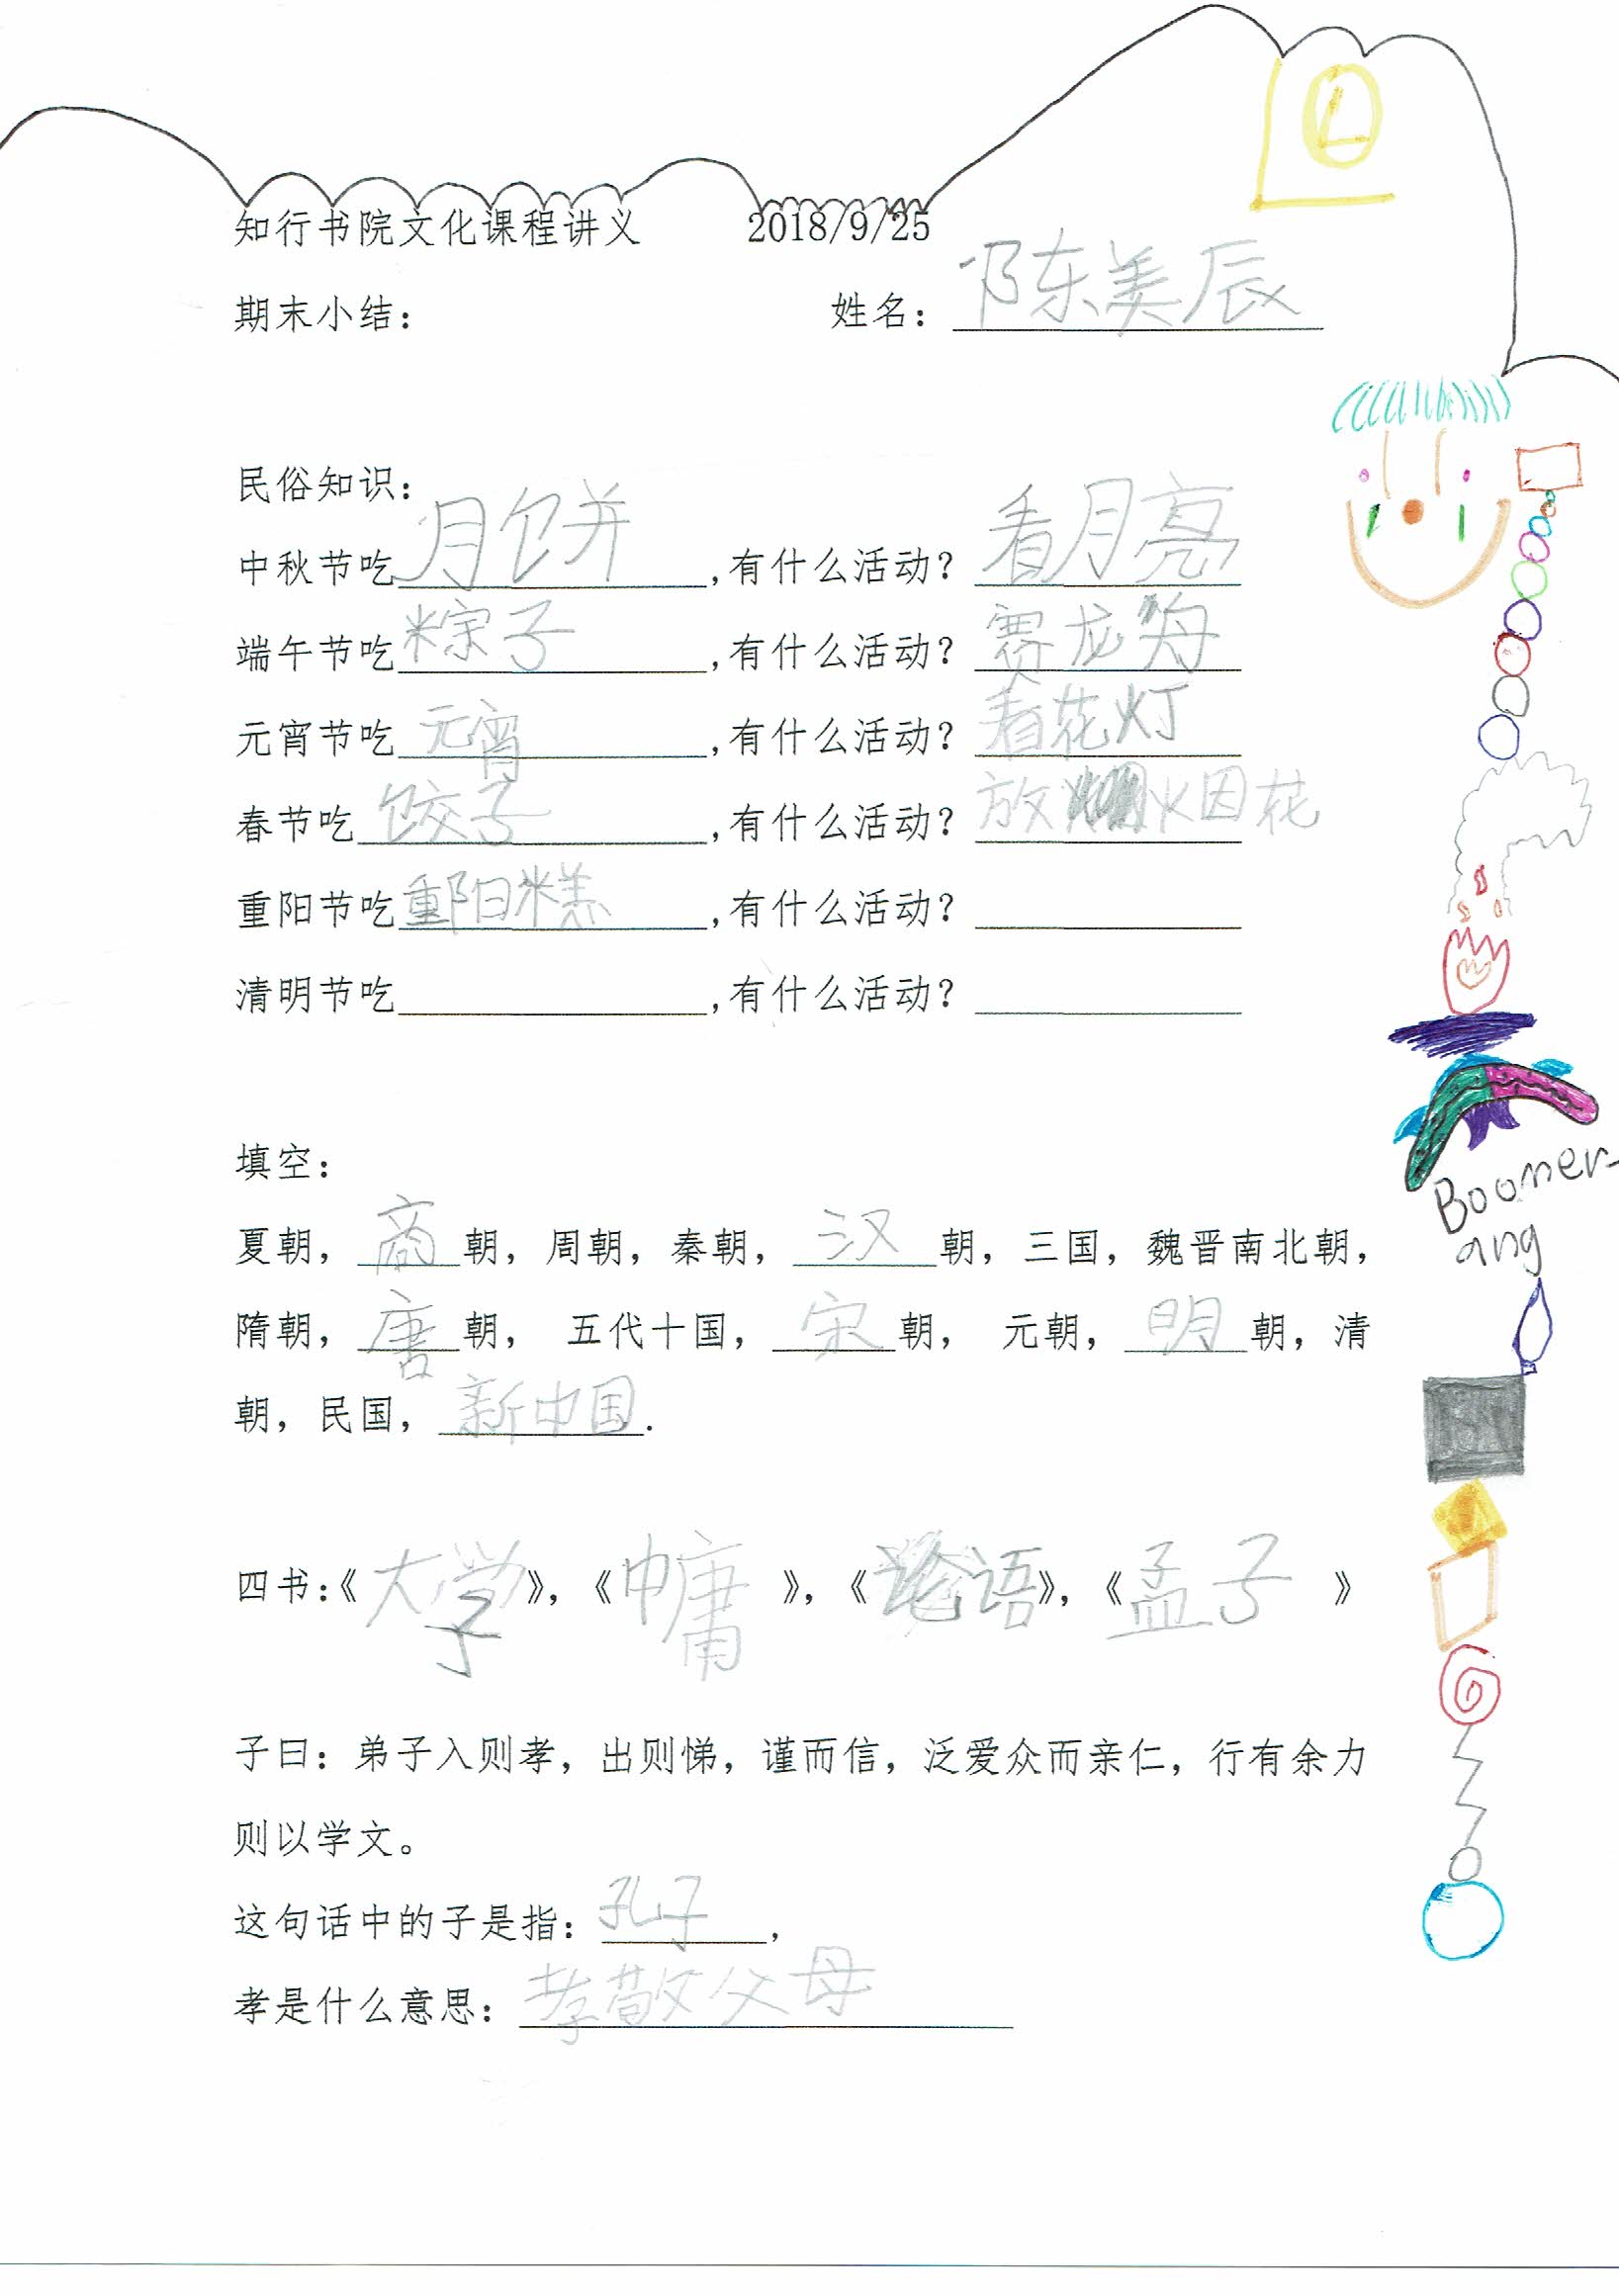 知行书院文化课程讲义 2018/9/25
期末小结： 姓名：陈美辰
民俗知识：
中秋节吃月饼，有什么活动？看月亮
端午节吃粽子，有什么活动？赛龙舟
元宵节吃元宵，有什么活动？看花灯
春节吃饺子，有什么活动？放烟花
重阳节吃重阳糕，有什么活动？
清明节吃，有什么活动？
Boomer-
ang
填空：
夏朝，商朝，周朝，秦朝，汉朝，三国，魏晋南北朝，
隋朝，唐朝， 五代十国，宋朝， 元朝，明朝，清
朝，民国，新中国.
四书：《大学》，《中庸》，《论语》，《孟子》
子曰：弟子入则孝，出则悌，谨而信，泛爱众而亲仁，行有余力
则以学文。
这句话中的子是指：孔子，
孝是什么意思：孝敬父母